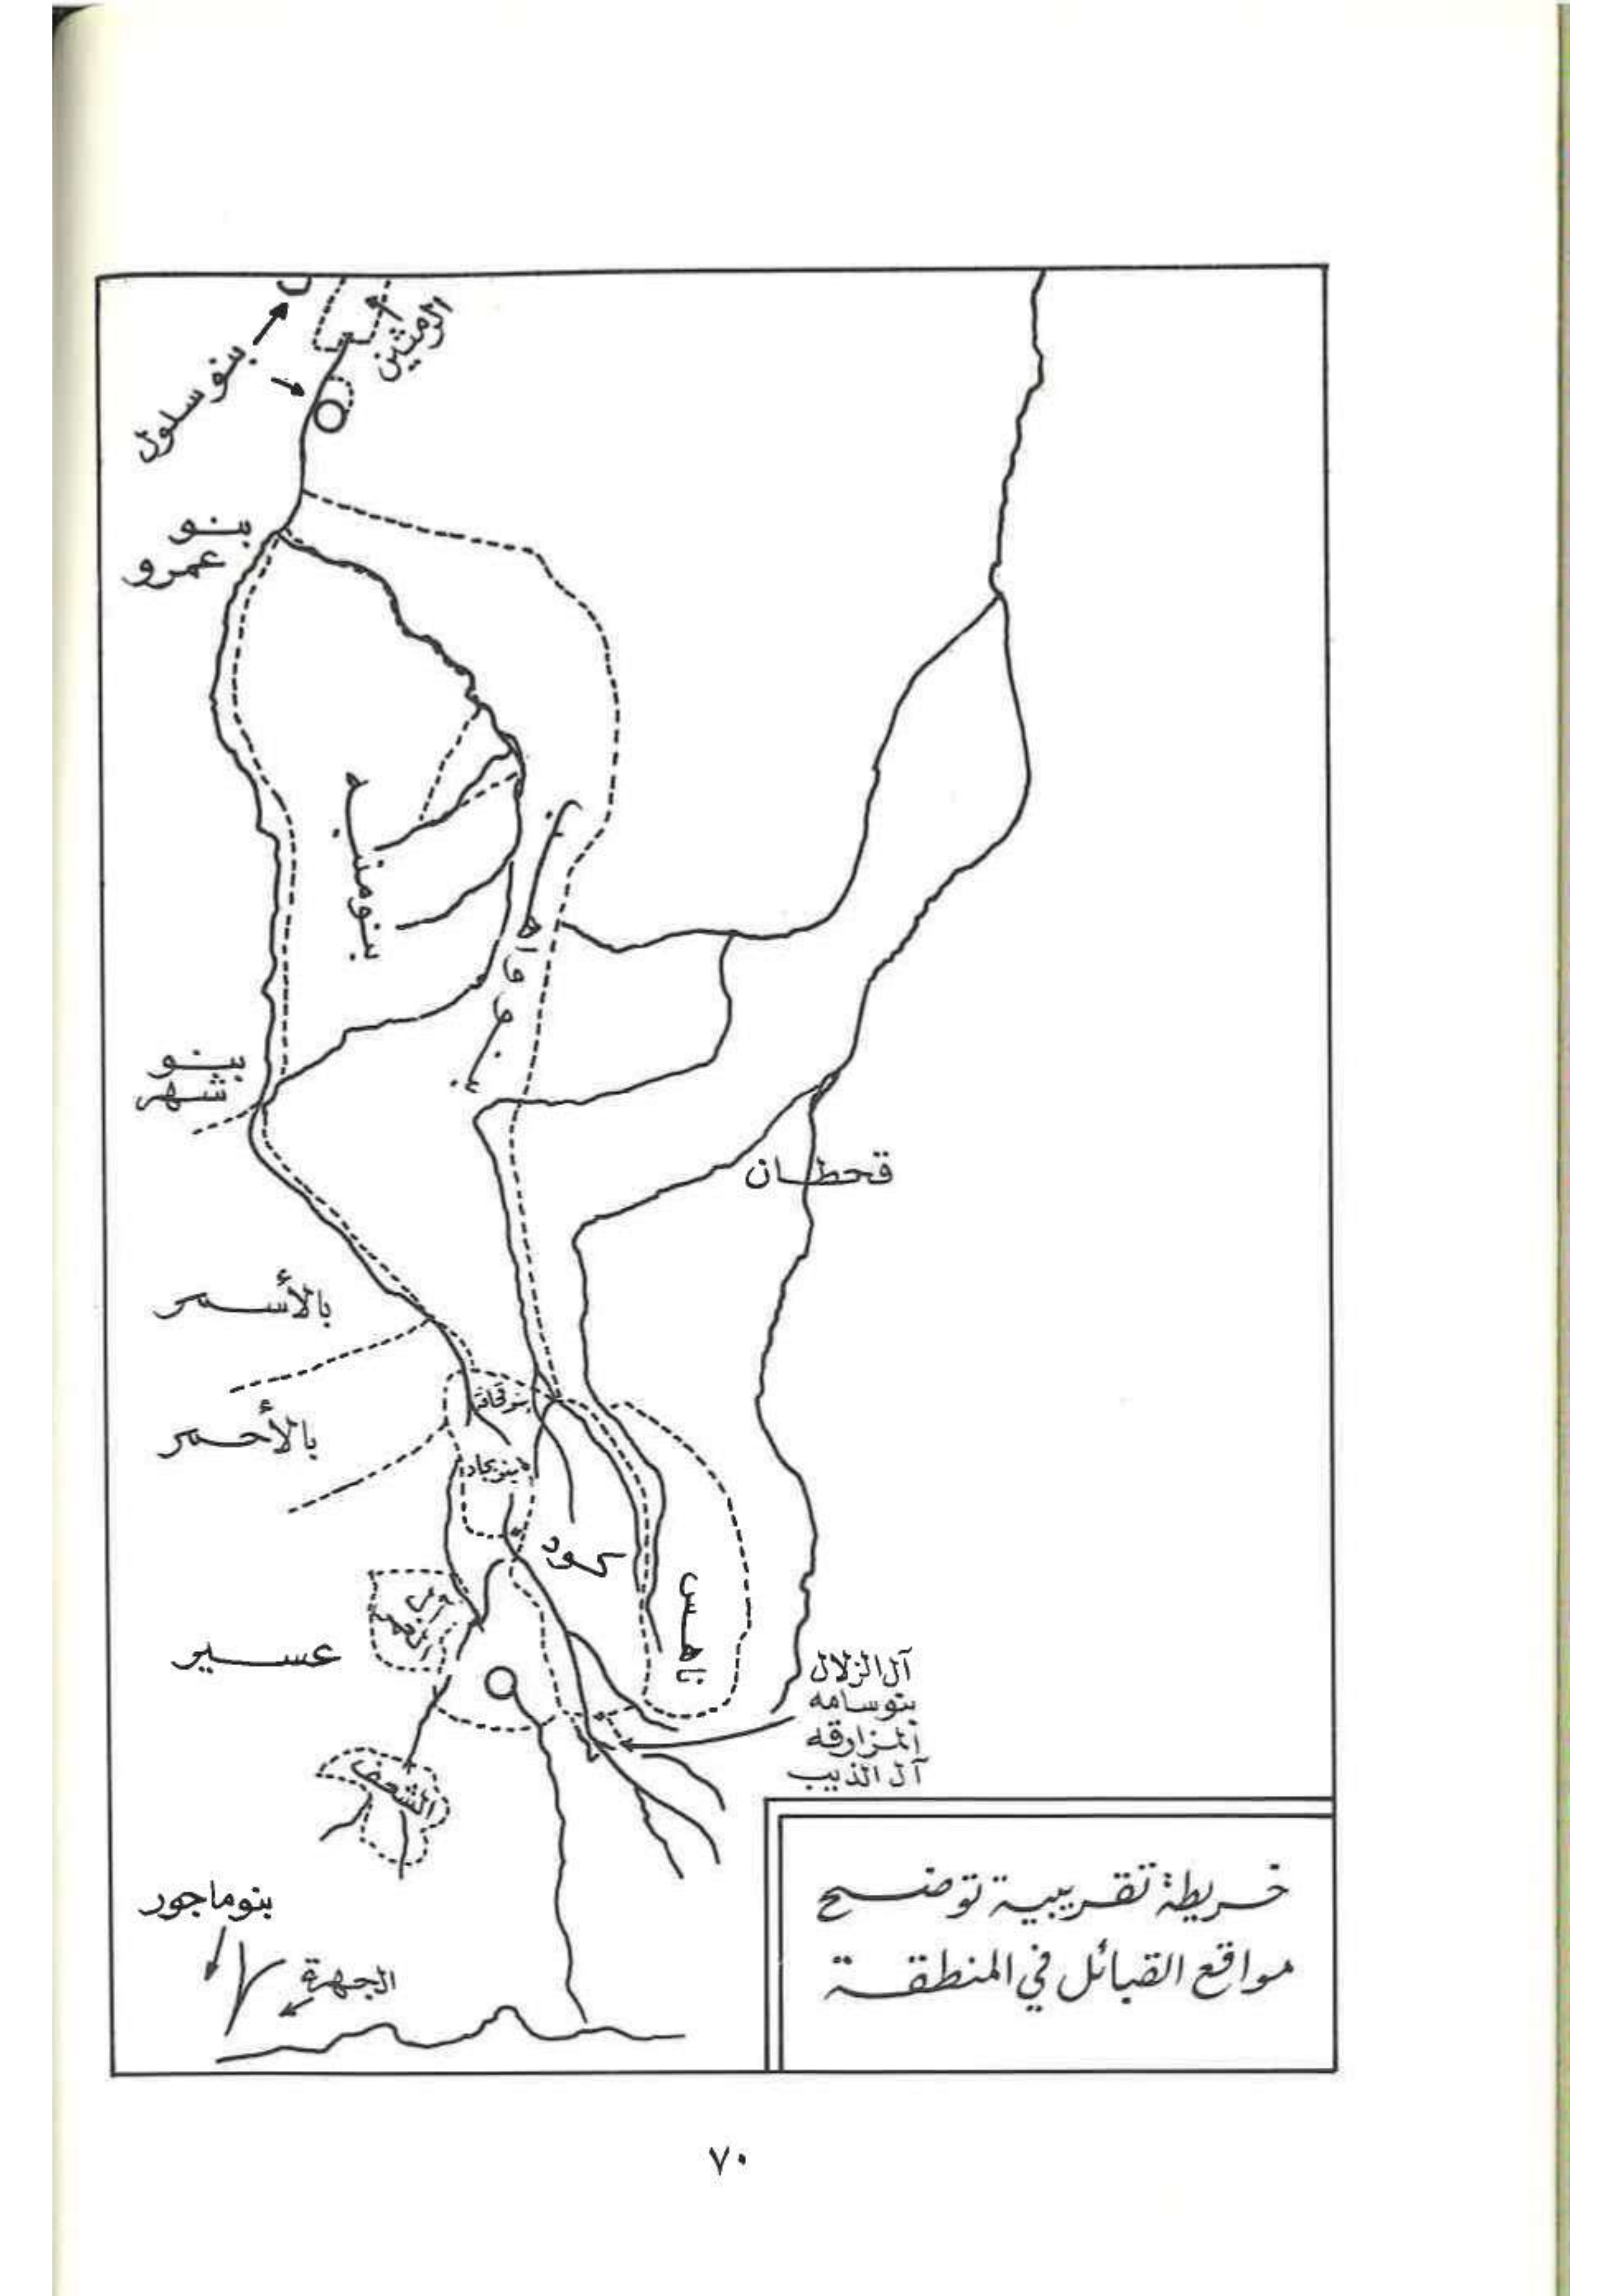 الرمثين
بنو سلول
بنو
عمرو
بنو منبه
بنو واهب
بنو
شهر
قحطان
بالأسمر
بالأحمر
كود
ناهس
عسير
آل الزلال
بنو سامه
المزارقه
آل الذيب
الشعف
بنو ماجور
الجهرة
خريطة تقريبية توضح
مواقع القبائل في المنطقة
٧٠